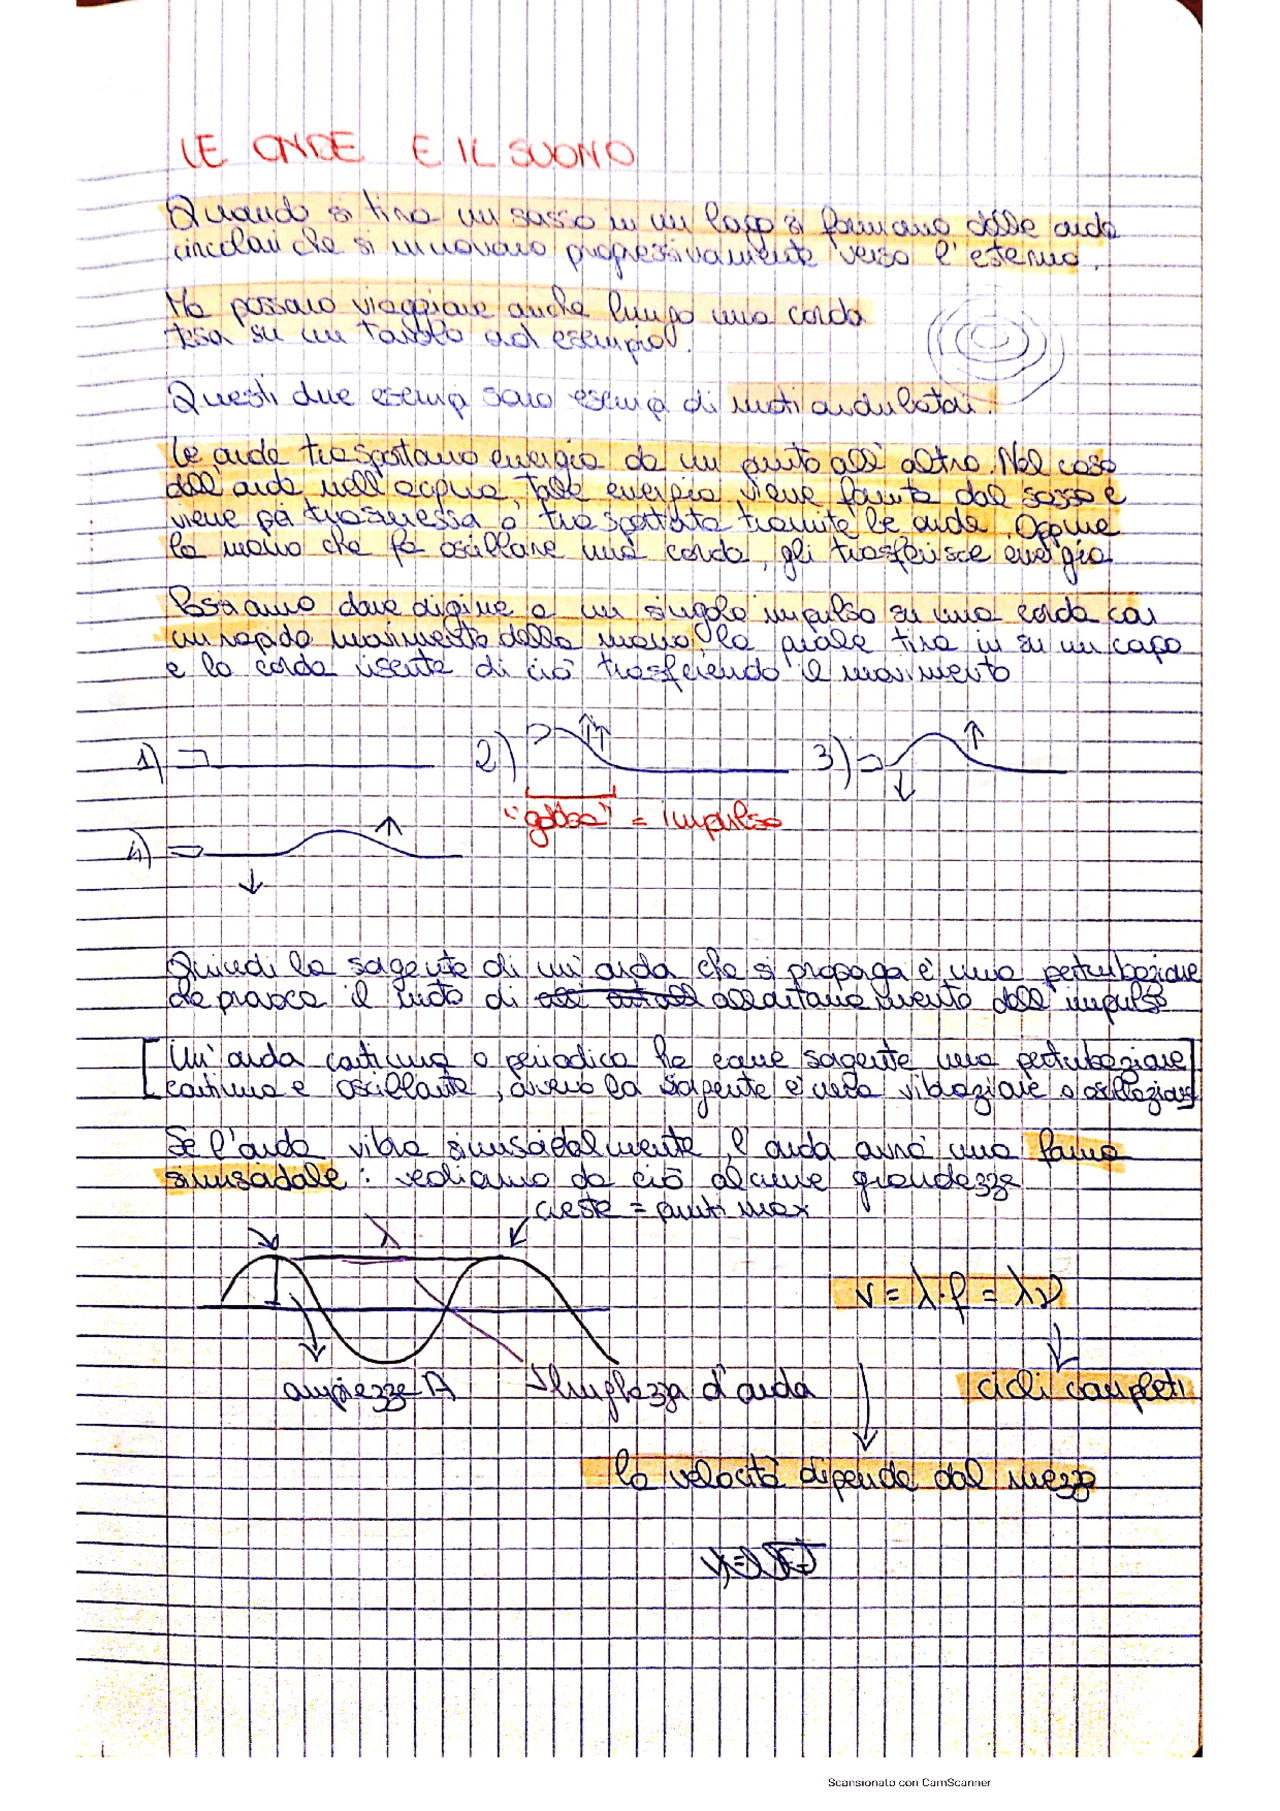 LE ONDE E IL SUONO
Quando si tira un sasso in un lago si formano delle onde
circolari che si muovono progressivamente verso l'esterno.
Ma possono viaggiare anche lungo una corda
tesa su un tavolo ad esempio.
Questi due esempi sono esempi di moti ondulatori.
Le onde trasportano energia da un punto all'altro. Nel caso
dell'onda nell'acqua, tale energia viene fornita dal sasso e
viene poi trasmessa o trasportata tramite le onde. Oppure
la mano che fa oscillare una corda, gli trasferisce energia
Possiamo dare origine a un singolo impulso su una corda con
un rapido movimento della mano, la quale tira in su un capo
e la corda risente di ciò trasferendo il movimento
1) 2) 3)
"gobba" = impulso
4)
Quindi la sorgente di un'onda che si propaga è una perturbazione
che provoca il moto di allontanamento dell'impulso
[Un'onda continua o periodica ha come sorgente una perturbazione]
[continua e oscillante, ovvero la sorgente è una vibrazione o oscillazione]
Se l'onda vibra sinusoidalmente, l'onda avrà una forma
sinusoidale : vediamo da ciò alcune grandezze
creste = punti max
λ
v = λ·f = λν
ampiezza A lunghezza d'onda cicli completi
la velocità dipende dal mezzo
Scansionato con CamScanner